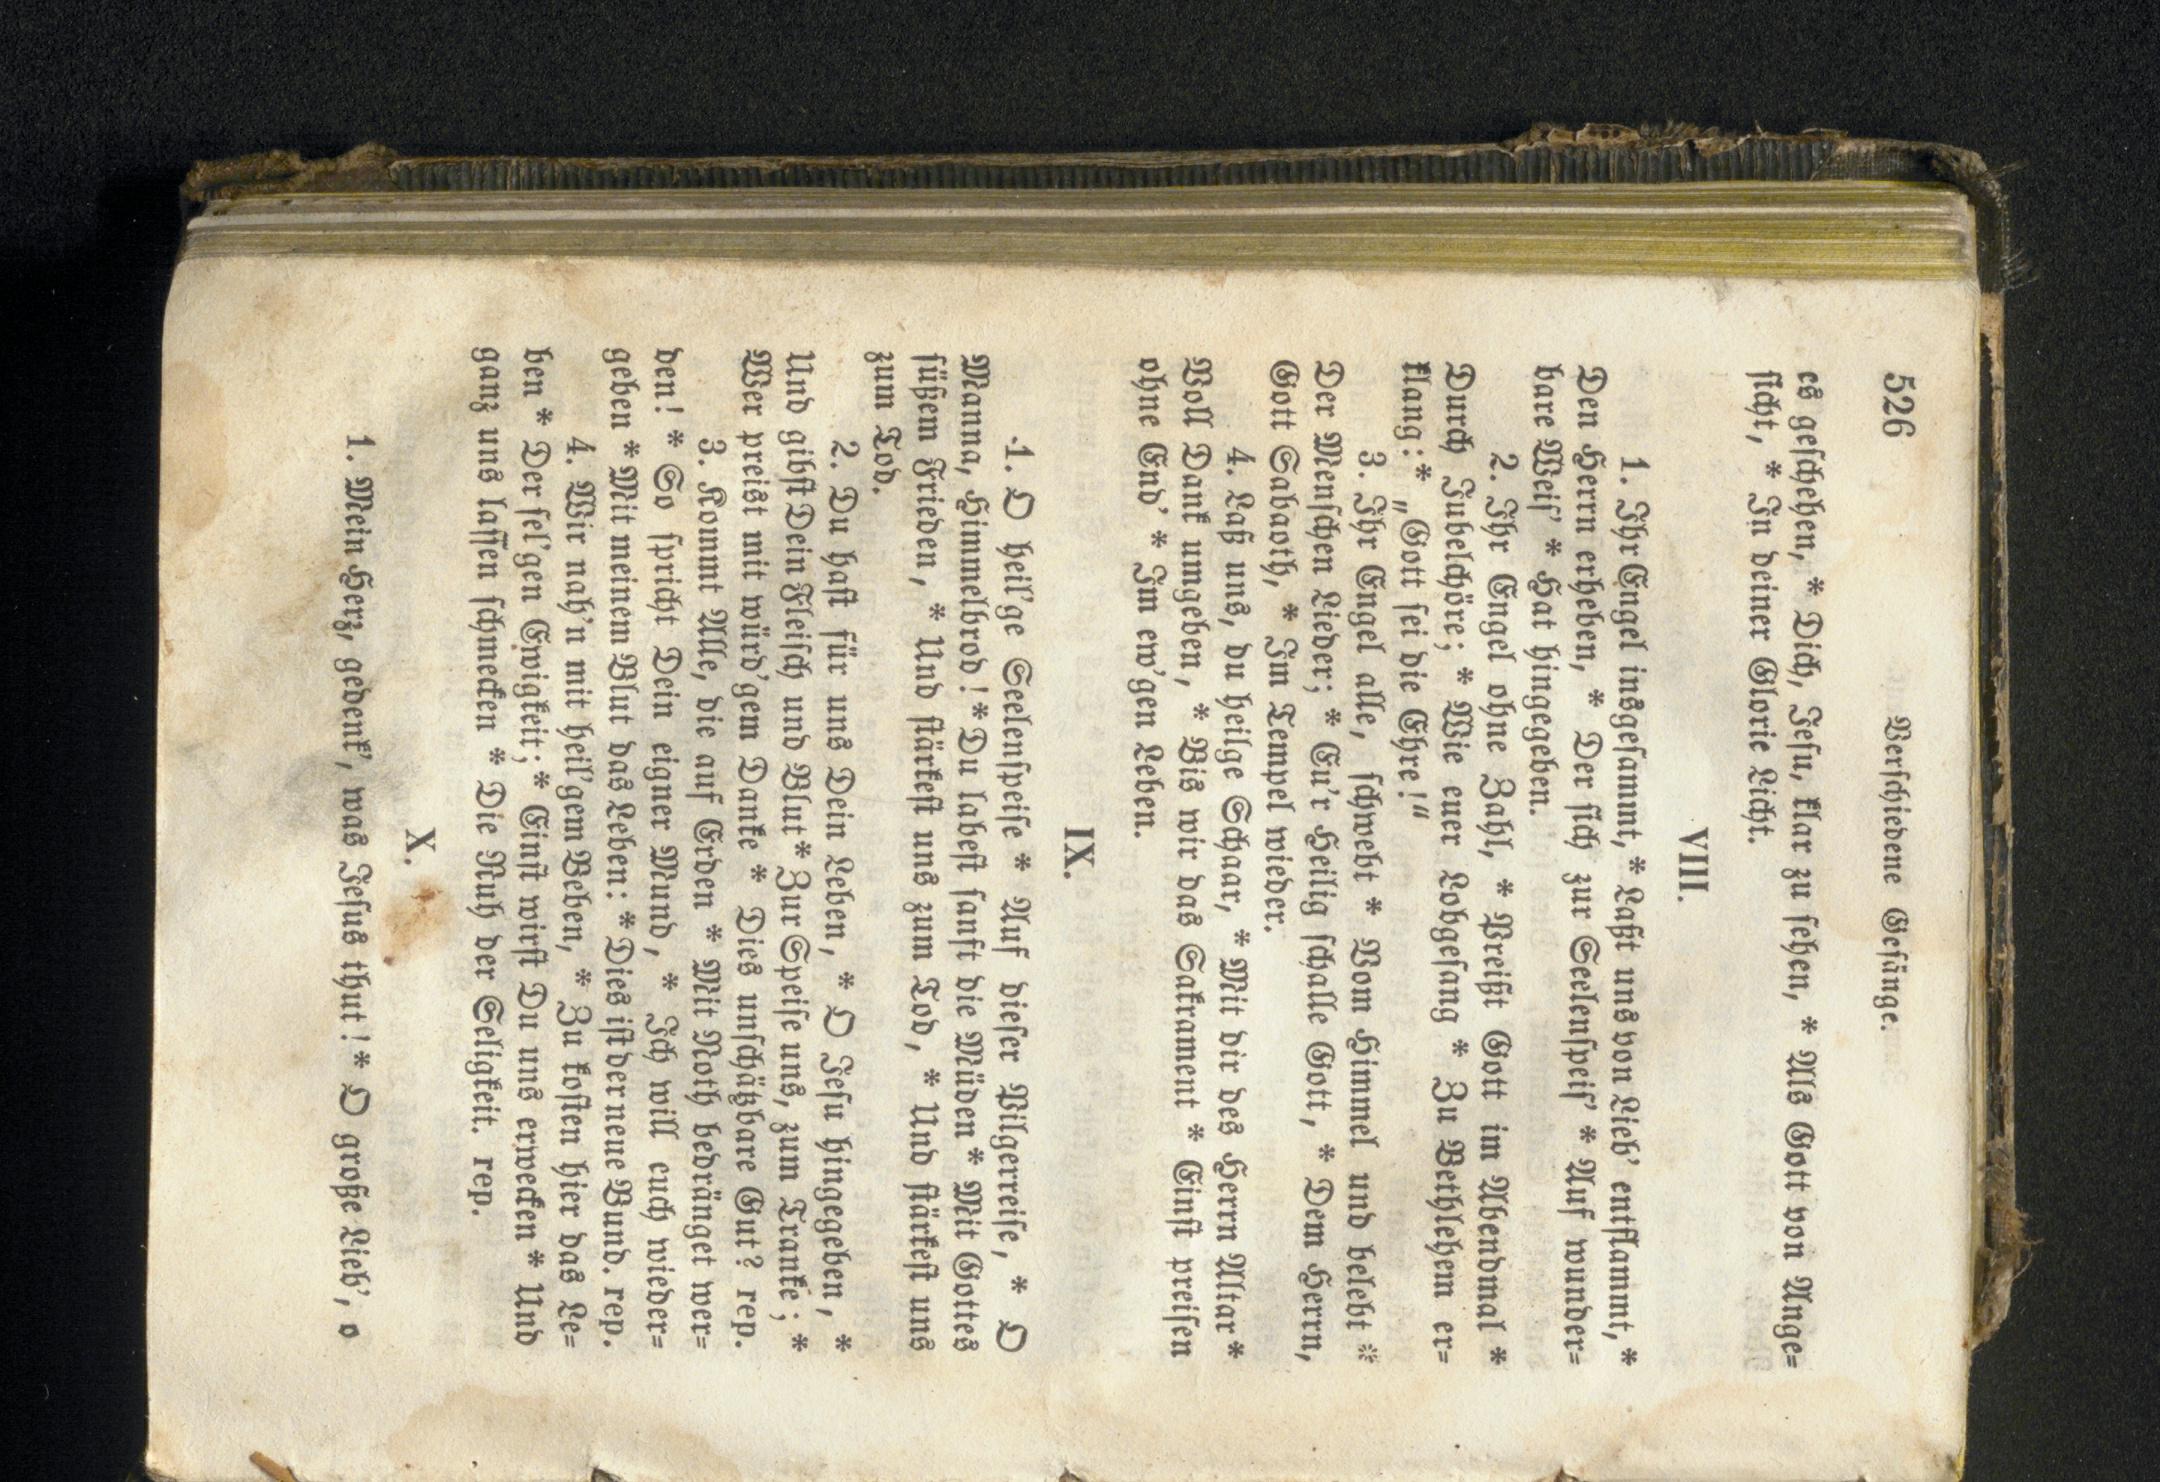 526 Verschiedene Gesänge.
es geschehen, * Dich, Jesu, klar zu sehen, * Als Gott von Unge=
sicht, * In deiner Glorie Licht.
VIII.
1. Ihr Engel insgesammt, * Laßt uns von Lieb' entflammt, *
Den Herrn erheben, * Der sich zur Seelenspeis' * Auf wunder=
bare Weis' * Hat hingegeben.
2. Ihr Engel ohne Zahl, * Preißt Gott im Abendmal *
Durch Jubelchöre; * Wie euer Lobgesang * Zu Bethlehem er=
klang: * „Gott sei die Ehre!“
3. Ihr Engel alle, schwebt * Vom Himmel und belebt *
Der Menschen Lieder; * Eu'r Heilig schalle Gott, * Dem Herrn,
Gott Sabaoth, * Im Tempel wieder.
4. Laß uns, du heilge Schaar, * Mit dir des Herrn Altar *
Voll Dank umgeben, * Bis wir das Sakrament * Einst preisen
ohne End' * Im ew'gen Leben.
IX.
1. O heil'ge Seelenspeise * Auf dieser Pilgerreise, * O
Manna, Himmelbrod! * Du labest sanft die Müden * Mit Gottes
süßem Frieden, * Und stärkest uns zum Tod, * Und stärkest uns
zum Tod.
2. Du hast für uns Dein Leben, * O Jesu hingegeben, *
Und gibst Dein Fleisch und Blut * Zur Speise uns, zum Tranke; *
Wer preist mit würd'gem Danke * Dies unschätzbare Gut? rep.
3. Kommt Alle, die auf Erden * Mit Noth bedränget wer=
den! * So spricht Dein eigner Mund, * Ich will euch wieder=
geben * Mit meinem Blut das Leben: * Dies ist der neue Bund. rep.
4. Wir nah'n mit heil'gem Beben, * Zu kosten hier das Le=
ben * Der sel'gen Ewigkeit; * Einst wirst Du uns erwecken * Und
ganz uns lassen schmecken * Die Ruh der Seligkeit. rep.
X.
1. Mein Herz, gedenk', was Jesus thut! * O große Lieb', o